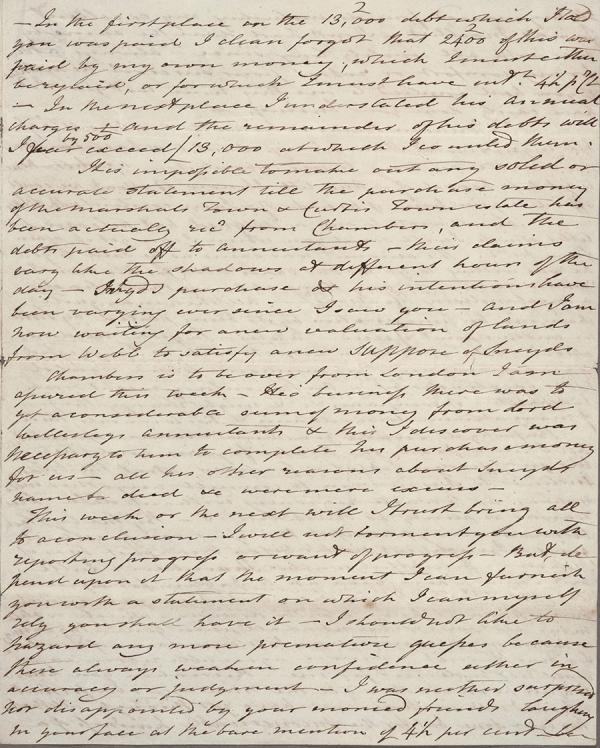 – In the first place on the 13,000 debt which I told
you was paid I clean forgot that 2400 of this was
paid by my own money, which I must either
be repaid, or for which I must have int.t 4½ pr Ct
– In the next place I understated his annual
charges and the remainder of his debts will
I fear exceed by 500 £ 13,000 at which I counted them.
It is impossible to make out any solid or
accurate statement till the purchase money
of the Marshals Town & Curtis Town estate has
been actually recd from Chambers, and the
debts paid off to annuitants – their claims
vary like the shadows at different hours of the
day – Sneyds purchase & his intentions have
been varying ever since I saw you – and I am
now waiting for a new valuation of lands
from Webb to satisfy a new Suppose of Sneyds
Chambers is to be over from London I am
assured this week – His business there was to
get a considerable sum of money from Lord
Wellesleys annuitants & this I discover was
necessary to him to complete his purchase money
for us – all his other reasons about Sneyds
name to deed &c were mere excuses –
This week or the next will I trust bring all
to a conclusion – I will not torment you with
reporting progress or want of progress – But de
pend upon it that the moment I can furnish
you with a statement on which I can myself
rely you shall have it – I should not like to
hazard any more premature guesses because
these always weaken confidence either in
accuracy or judgment – I was neither surprised
nor disappointed by your monied friends laughing
in your face at the bare mention of 4½ per cent